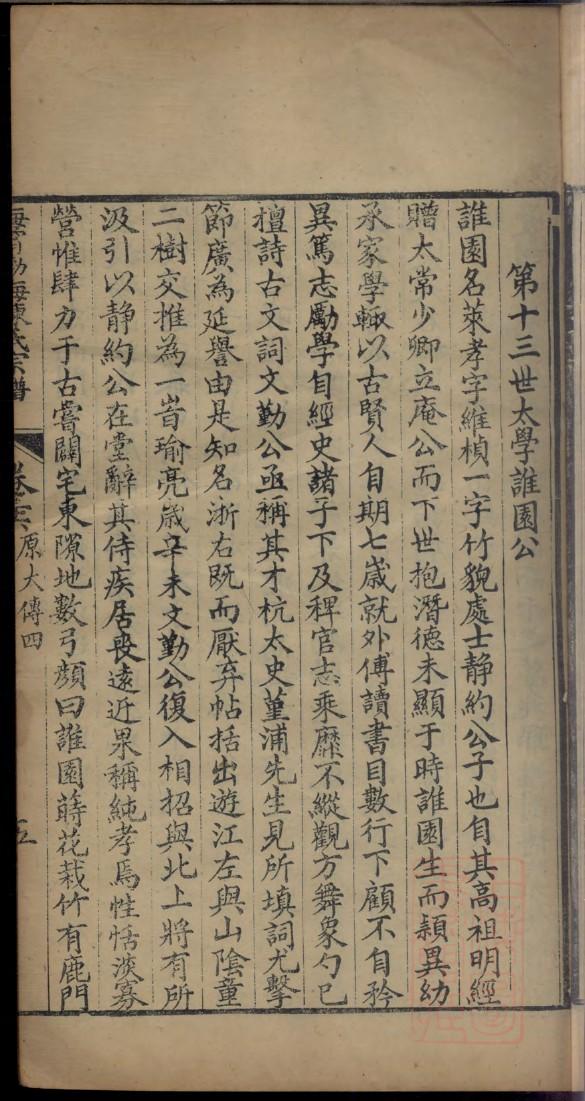 第十三世太學誰園公
誰園名萊孝字維楨一字竹貌處士静約公子也自其高祖明經
贈太常少卿立庵公而下世抱潛德未顯于時誰園生而穎異幼
承家學輒以古賢人自期七歲就外傅讀書目數行下顧不自矜
異篤志勵學自經史諸子下及稗官志乘靡不縱觀方舞象勺已
擅詩古文詞文勤公亟稱其才杭太史堇浦先生見所填詞尤擊
節廣為延譽由是知名浙右既而厭弃帖括出遊江左與山陰童
二樹交推為一旹瑜亮歲辛未文勤公復入相招與北上將有所
汲引以静約公在堂辭其侍疾居喪遠近㒸稱純孝焉性恬淡寡
營惟肆力于古嘗闢宅東隙地數弓顏曰誰園蒔花栽竹有鹿門
海寧渤海陳氏宗譜 卷 原大傳四 五